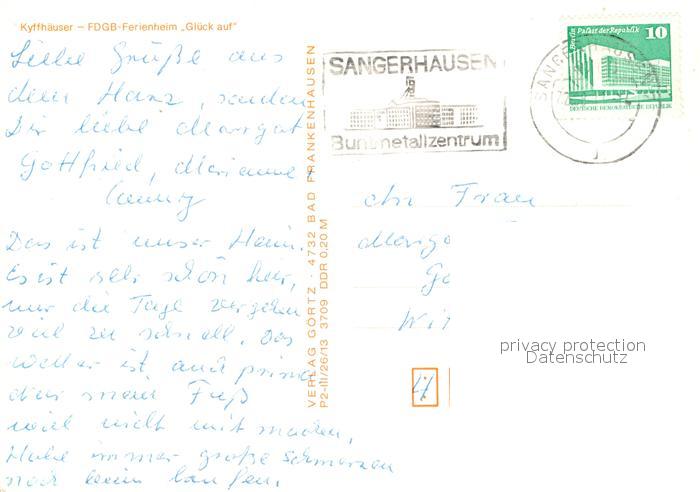 Kyffhäuser – FDGB-Ferienheim „Glück auf"
Liebe Grüße aus
dem Harz, senden
Dir liebe Margot
Gottfried, Marianne,
Das ist unser Heim.
Es ist sehr schön hier,
nur die Tage vergehen
viel zu schnell. Das
Wetter ist auch prima
aber mein Fuß
will nicht mit machen,
Habe immer große schmerzen
noch beim laufen.
VERLAG GÖRTZ · 4732 BAD FRANKENHAUSEN
P2-III/26/13 3709 DDR 0,20 M
SANGERHAUSEN
Buntmetallzentrum
Berlin Palast der Republik 10
DEUTSCHE DEMOKRATISCHE REPUBLIK
An Frau
Margo
Go
Wit
privacy protection
Datenschutz